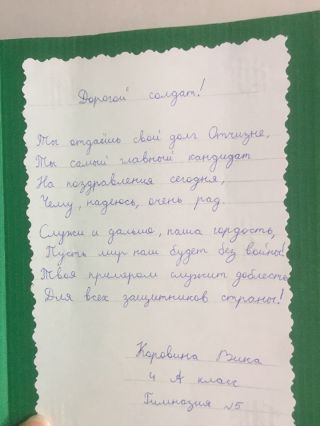 Дорогой солдат!
Ты отдаёшь свой долг Отчизне,
Ты самый главный кандидат
На поздравления сегодня,
Чему, надеюсь, очень рад.
Служи и дальше, наша гордость,
Пусть мир наш будет без войны!
Твоя примером служит доблесть
Для всех защитников страны!
Коровина Вика
4 А класс
Гимназия №5